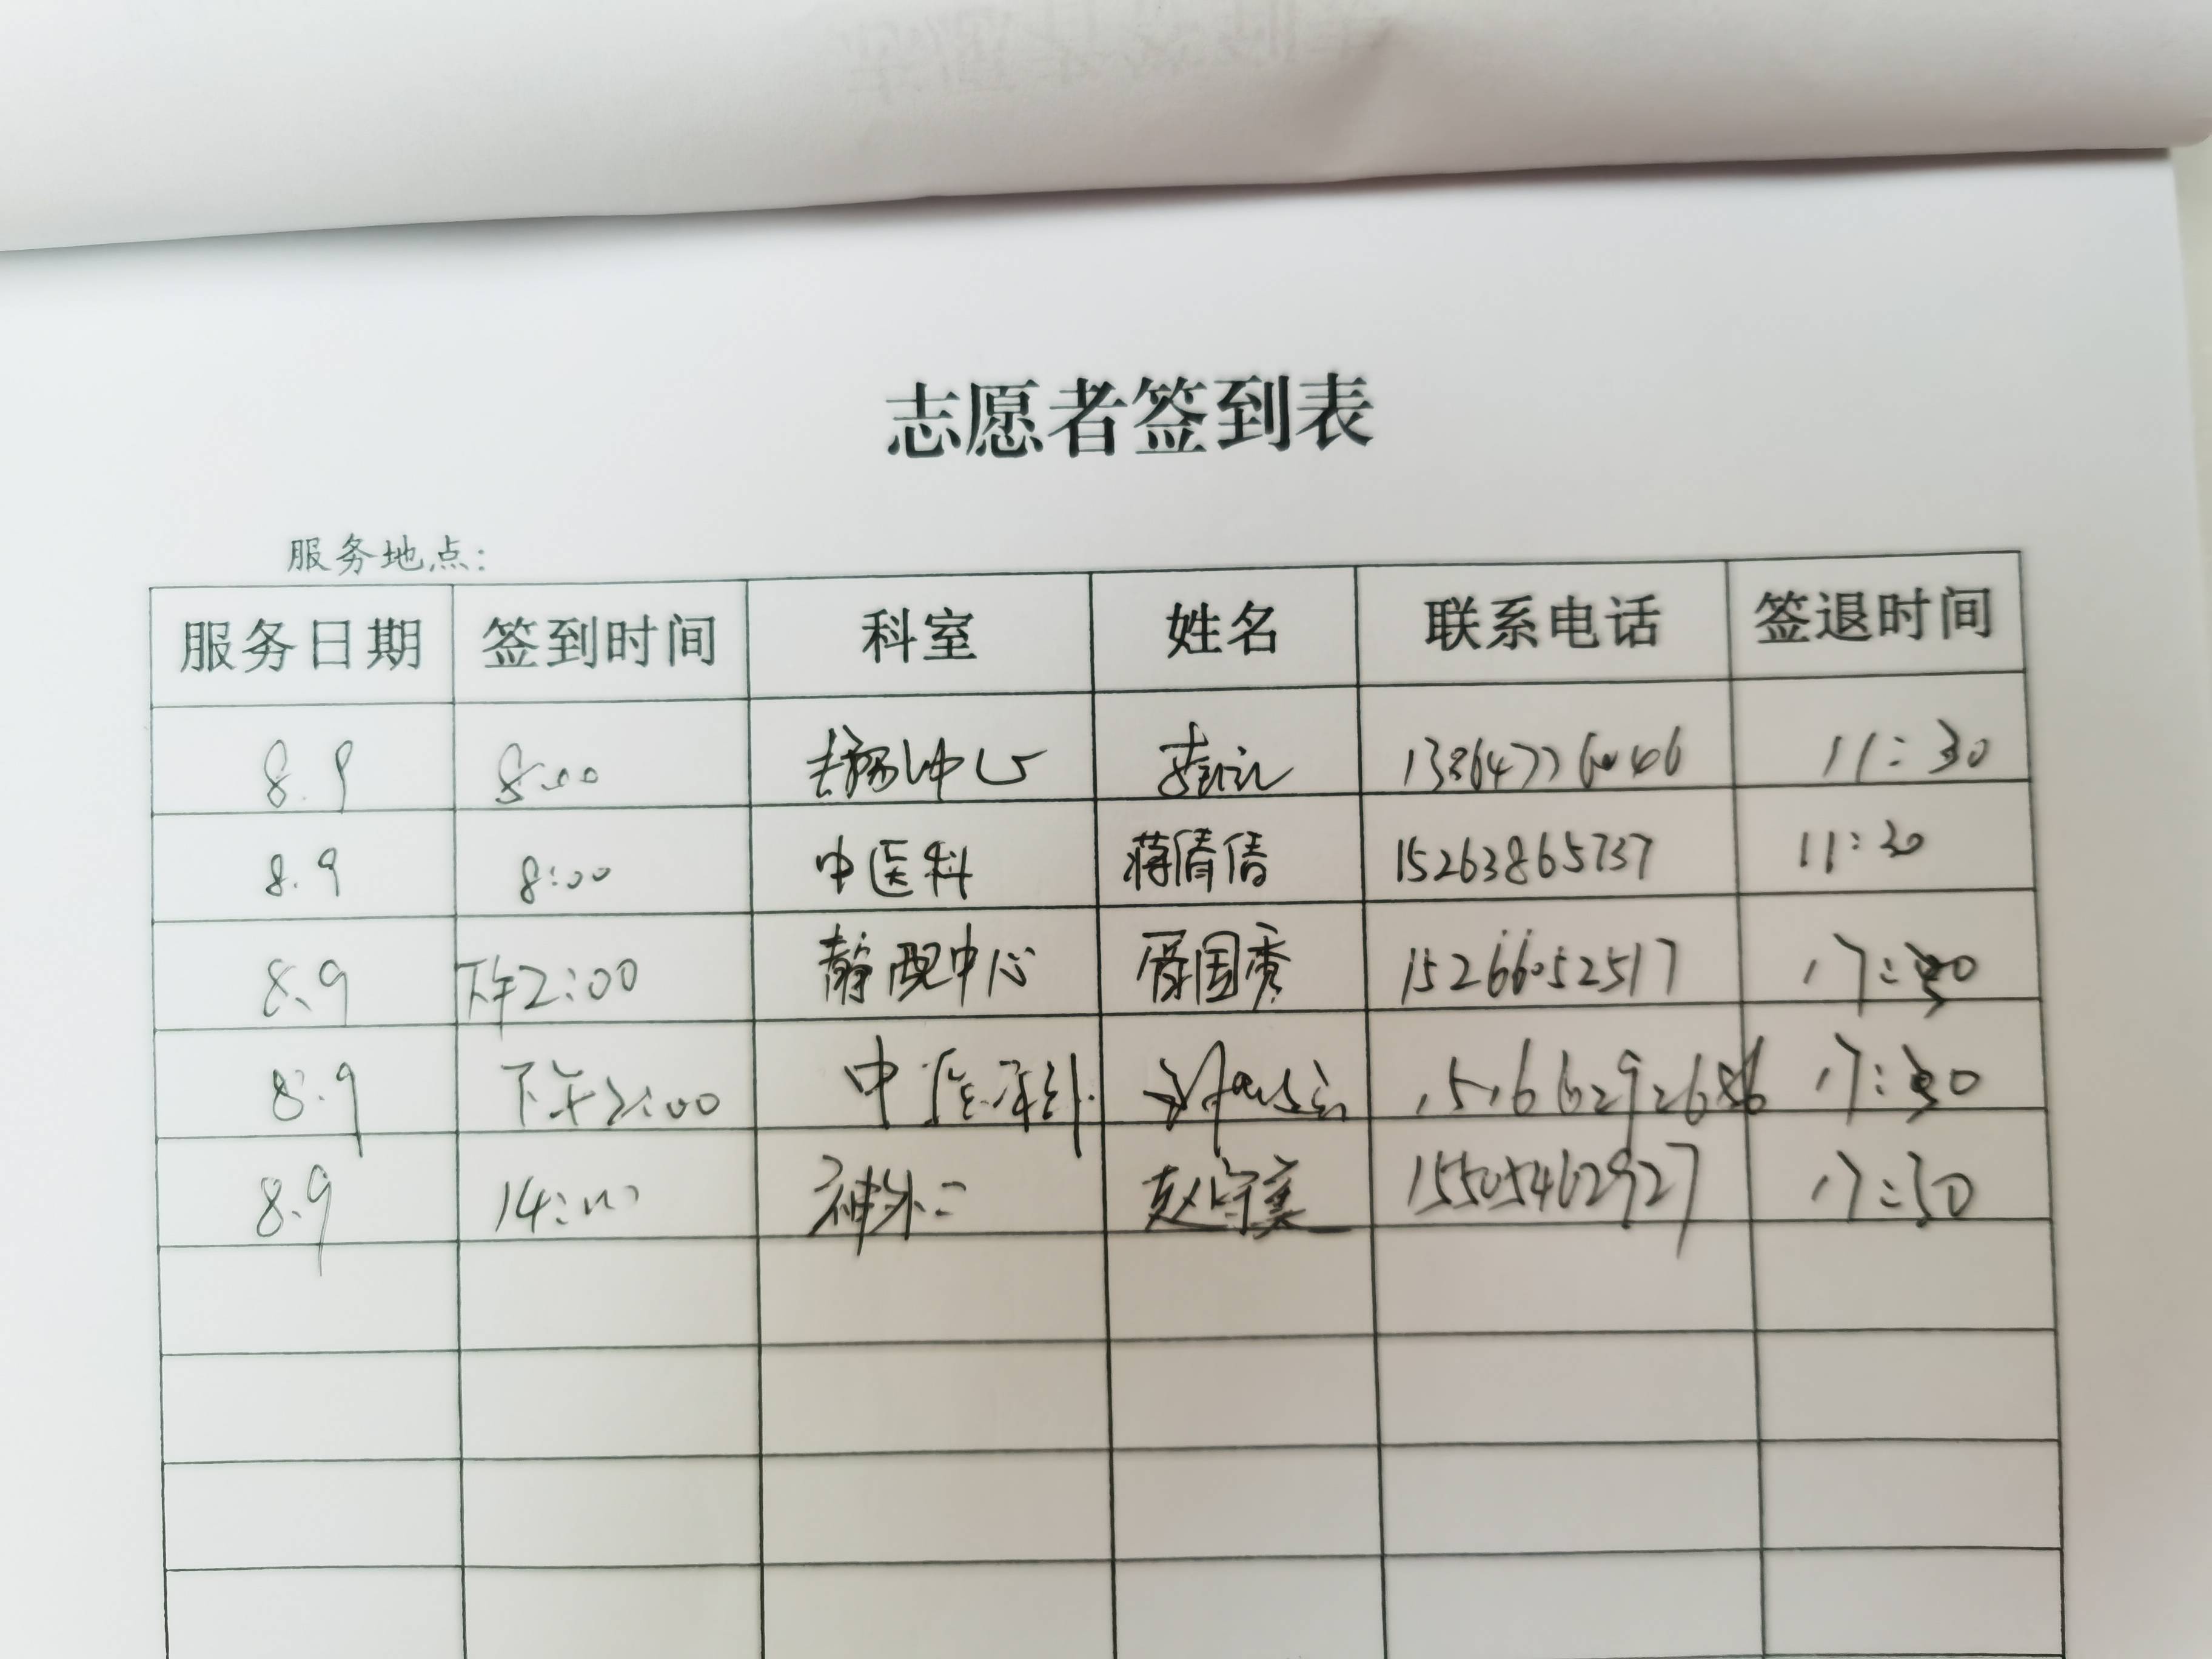 志愿者签到表
服务地点：
服务日期 签到时间 科室 姓名 联系电话 签退时间
8.9 8:00 中心 11:30
8.9 8:00 中医科 蒋倩倩 15263865737 11:30
8.9 下午2:00 静配中心 国秀 15266052517 17:30
8.9 下午2:00 中医 17:30
8.9 14:00 神外二 赵 15505462927 17:30